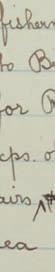 fishern
to Be
for R
cps. o
airs
ea